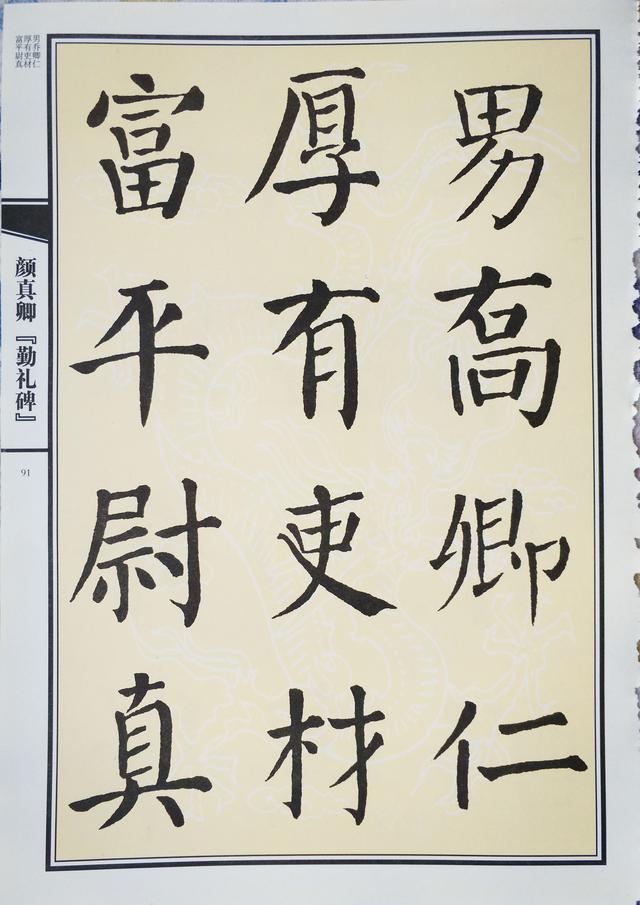 男喬卿仁
厚有吏材
富平尉真
男乔卿仁
厚有吏材
富平尉真
颜真卿『勤礼碑』
91